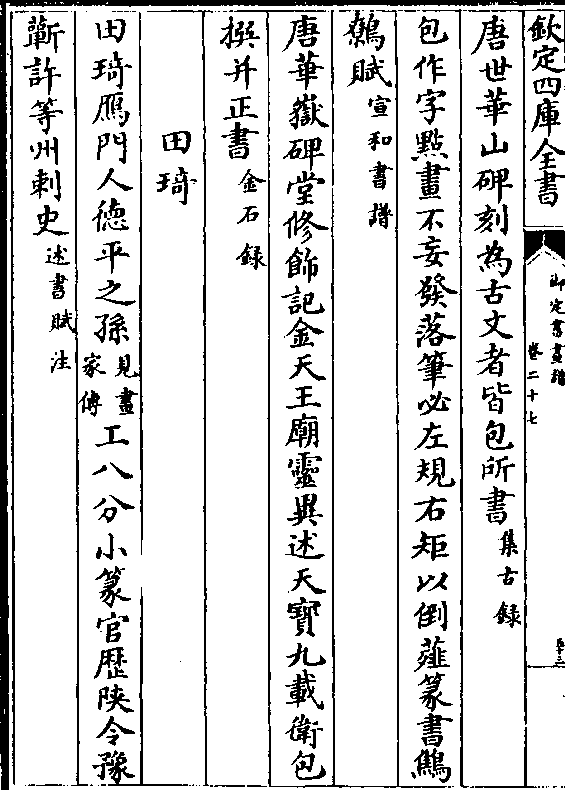 欽定四庫全書
御定書畫譜
卷二十七
唐世華山碑刻為古文者皆包所書集古錄
包作字點畫不妄發落筆必左規右矩以倒薤篆書鷦
鷯賦宣和書譜
唐華嶽碑堂修飾記金天王廟靈異述天寶九載衛包
撰并正書金石錄
田琦
田琦鴈門人德平之孫見畫家傳工八分小篆官歷陝令豫
蘄許等州刺史述書賦注